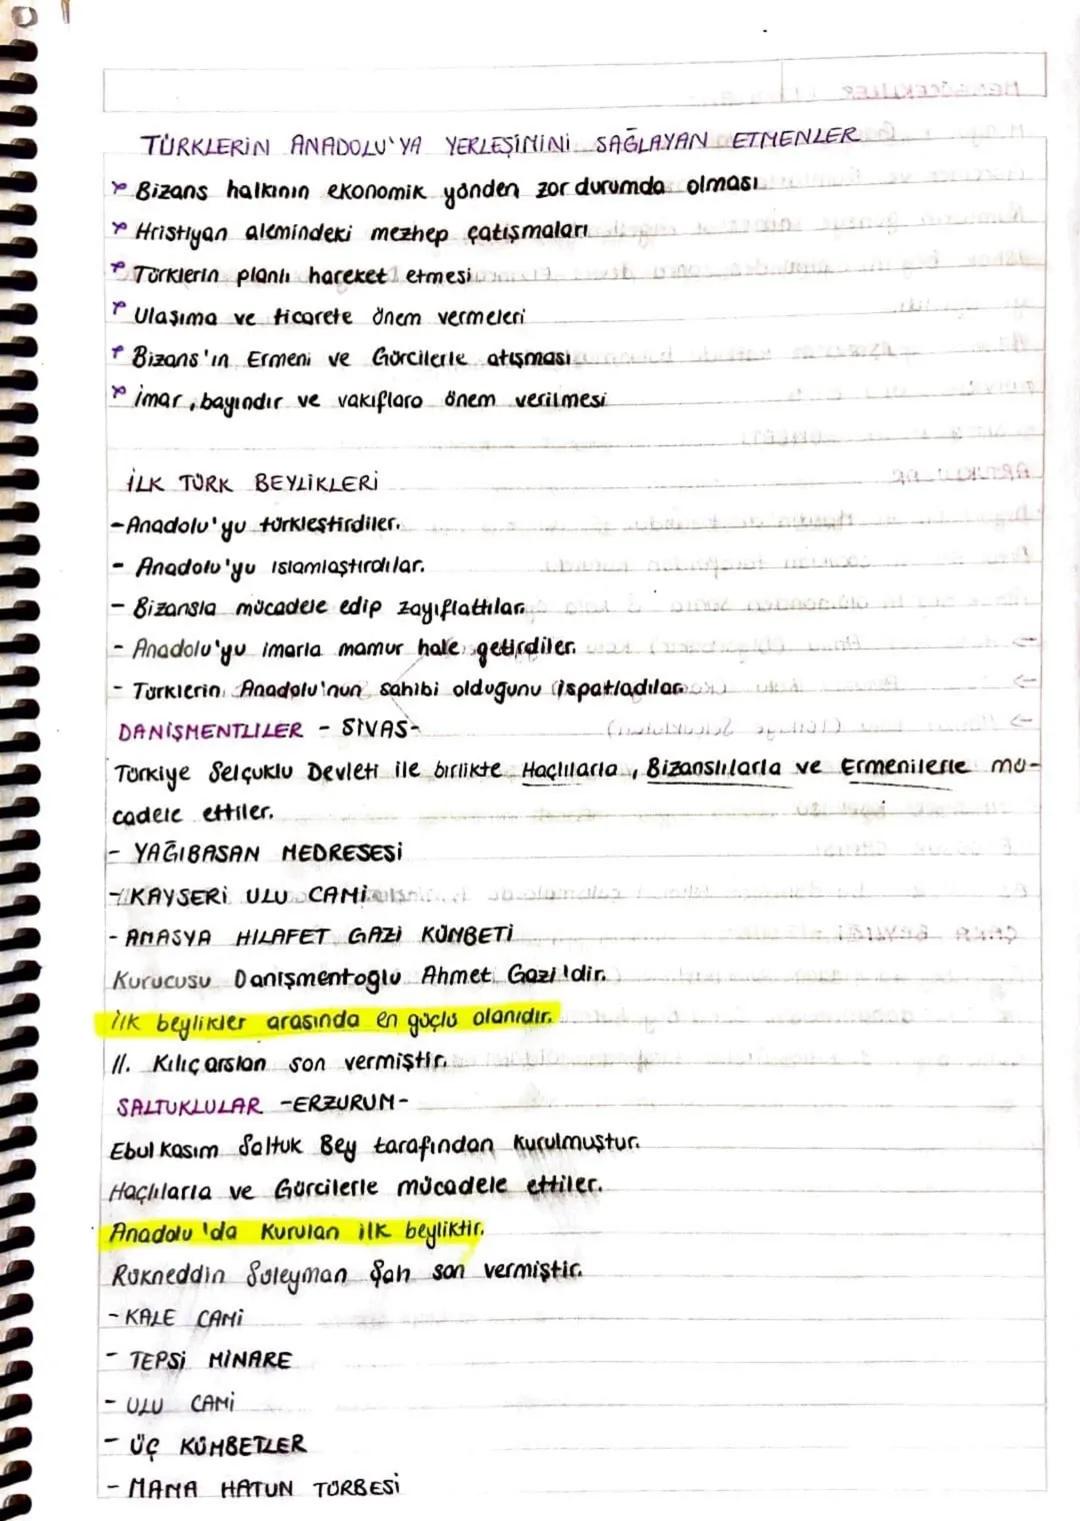 TÜRKLERİN ANADOLU'YA YERLEŞİMİNİ SAĞLAYAN ETMENLER
Bizans halkının ekonomik yönden zor durumda olması
Hristiyan alemindeki mezhep çatışmaları
Türklerin planlı hareket etmesi
Ulaşıma ve ticarete önem vermeleri
Bizans'ın Ermeni ve Gürcilerle atışması
İmar, bayındır ve vakıflara önem verilmesi
İLK TÜRK BEYLİKLERİ
- Anadolu'yu türkleştirdiler.
- Anadolu'yu ıslamlaştırdılar.
- Bizansla mücadele edip zayıflattılar.
- Anadolu'yu imarla mamur hale getirdiler.
- Türklerin Anadolu'nun sahibi olduğunu ispatladılar.
DANİŞMENTLİLER - SİVAS-
Türkiye Selçuklu Devleti ile birlikte Haçlılarla, Bizanslılarla ve Ermenilerle mü-
cadele ettiler.
- YAĞIBASAN MEDRESESİ
- KAYSERİ ULU CAMİ
- AMASYA HILAFET GAZİ KÜMBETİ
Kurucusu Danişmentoğlu Ahmet Gazi'dir.
İlk beylikler arasında en güçlü olanıdır.
II. Kılıçarslan son vermiştir.
SALTUKLULAR -ERZURUM-
Ebul Kasım Saltuk Bey tarafından kurulmuştur.
Haçlılarla ve Gürcilerle mücadele ettiler.
Anadolu'da Kurulan ilk beyliktir.
Rükneddin Süleyman Şah son vermiştir.
- KALE CAMİ
- TEPSİ MİNARE
- ULU CAMİ
- ÜÇ KÜMBETLER
- MAMA HATUN TÜRBESİ